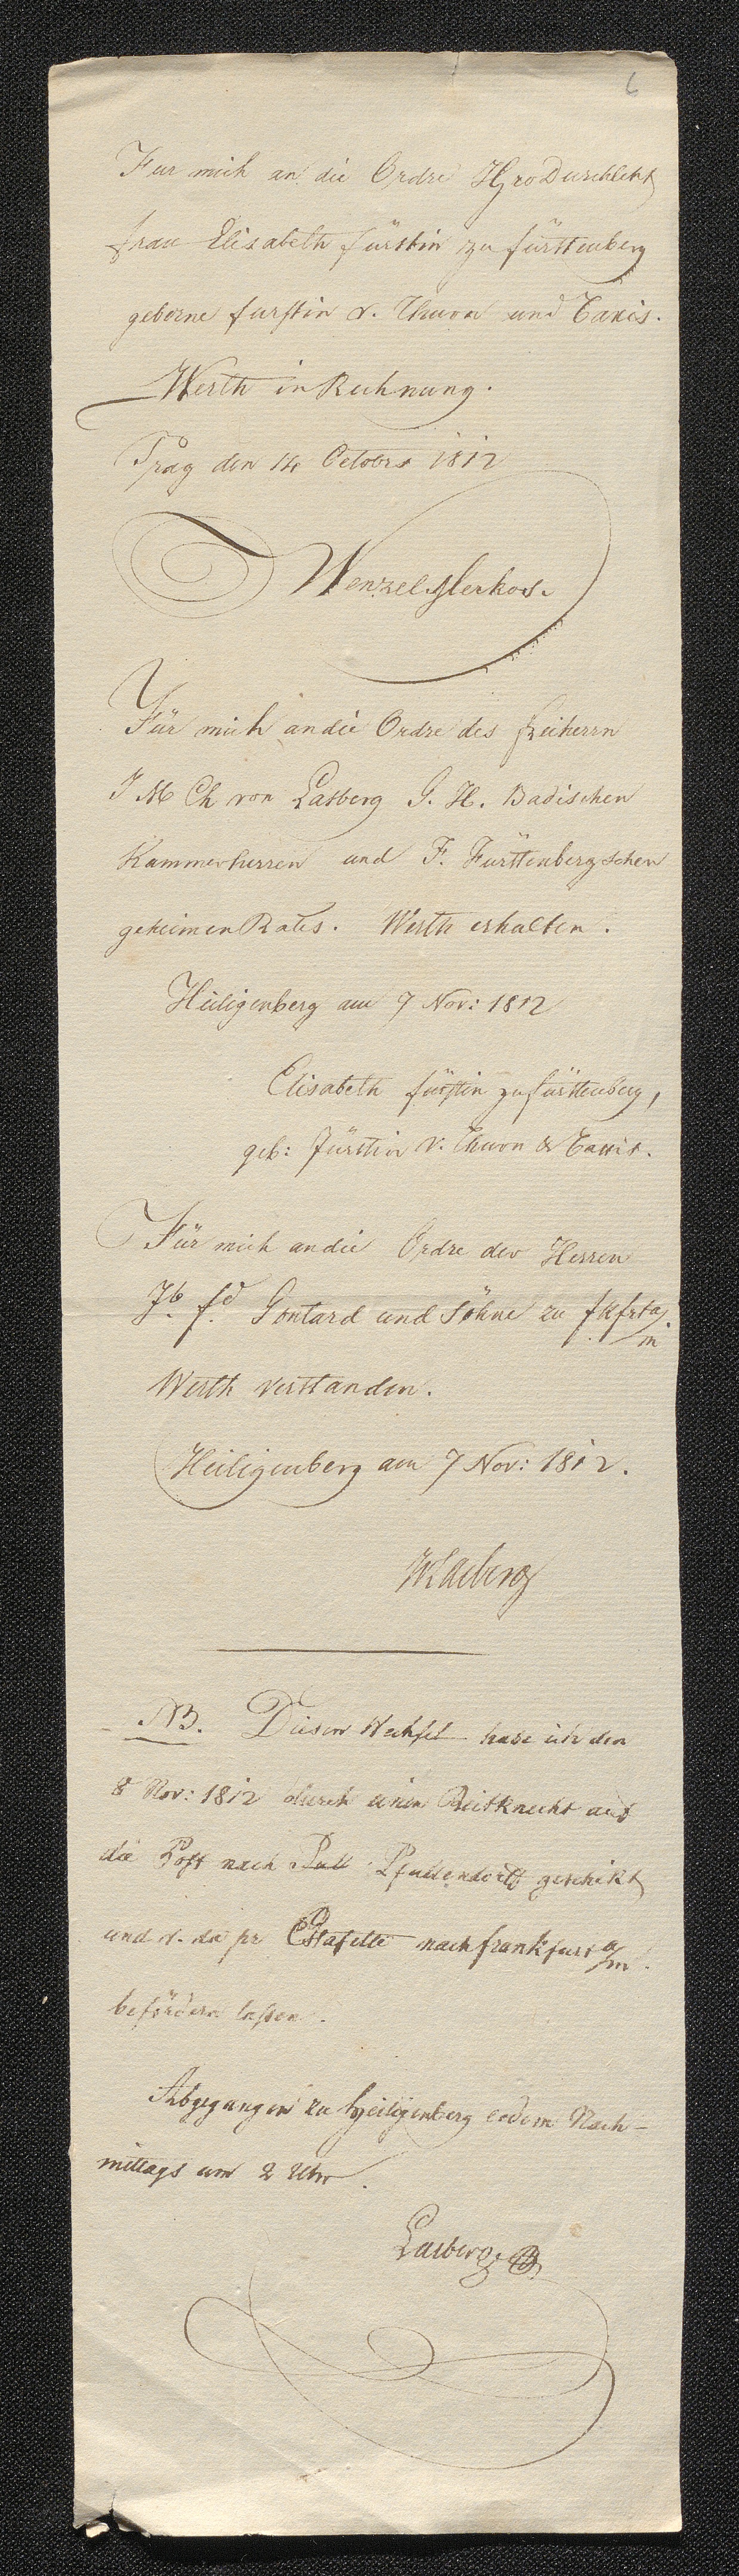 6
Fur mich an die Ordre Ihro Durchlcht
Frau Elisabeth Fürstin zu Fürstenberg
geborne Furstin v. Thurn und Taxis.
Werth in Rechnung.
Prag den 14 Octobrs 1812
Wenzel
Für mich an die Ordre des Freiherrn
J M Ch von Lasberg G. H. Badischen
Kammerherren und F. Fürstenbergschen
geheimen Rates. Werth erhalten.
Heiligenberg am 7 Nov: 1812
Elisabeth Fürstin zu Fürstenberg,
geb: Fürstin v. Thurn & Taxis.
Für mich an die Ordre der Herren
Jb. fd. Gontard und Söhne zu Fkfrt a/m.
Werth verstanden.
Heiligenberg am 7 Nov: 1812.
Lasberg
NB. Diesen Wechsel habe ich den
8 Nov: 1812 durch einen Reitknecht auf
die Post nach Pull Pfullendorff geschikt
und v. da pr Estafette nach Frankfurt a/m.
befördern lassen.
Abgegangen zu Heiligenberg eodem Nach-
mittags um 2 Uhr.
Lasberg.